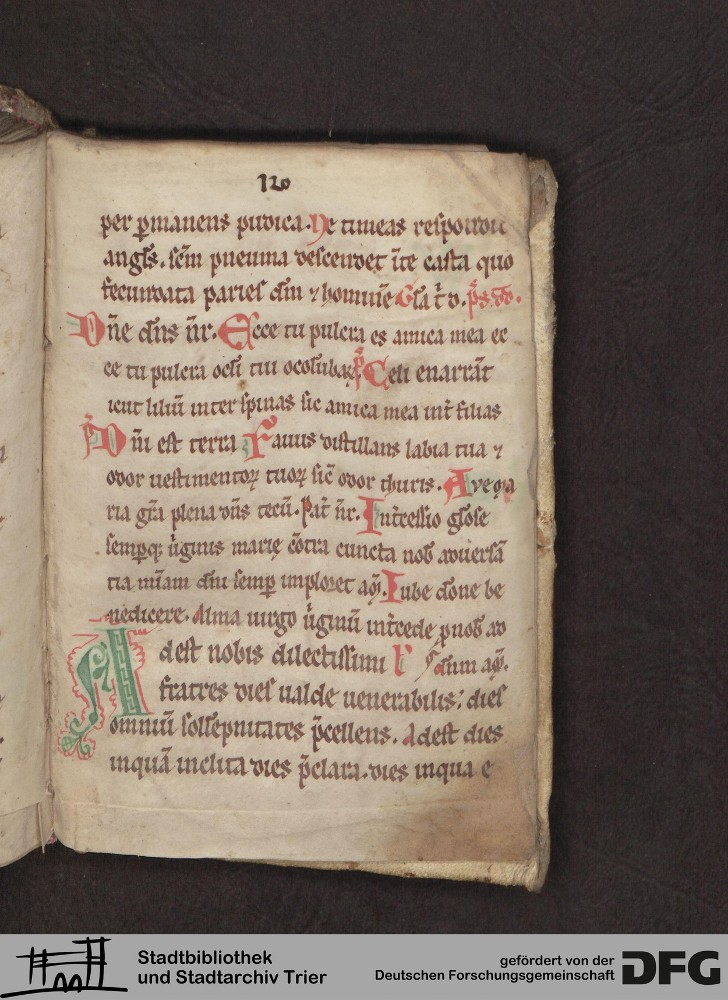 120
per ꝑmanens pudica. Ne timeas respondit
angl̄s. sc̄m pneuma descendet ī te casta quo
fecundata paries dm̄ ⁊ hominē Gl̄a p̄s.
Dn̄e dn̄s nr̄. Ecce tu pulcra es amica mea ec
ce tu pulcra oclī tui Celi enarrāt
icut liliū inter spinas sic amica mea int̄ filias
Dn̄i est terra Fauus distillans labia tua ⁊
odor uestimentoꝝ tuoꝝ sic̄ odor thuris. Ave
ria grā plena dn̄s tecū. Pat̄ nr̄. Int̄cessio glōse
semꝑqꝫ ūginis marię cōtra cuncta nob̄ aduersā
tia mīam dn̄i semꝑ imploret Iube dōne be
nedicere. Alma uirgo ūginū int̄cede ꝓ nob̄ ad
A dest nobis dilectissimi dūm
fratres dies ualde uenerabilis. dies
omniū sollēpnitates p̄cellens. Adest dies
inquā inclita dies p̄clara. dies inqua e
Stadtbibliothek
und Stadtarchiv Trier
gefördert von der
Deutschen Forschungsgemeinschaft
DFG